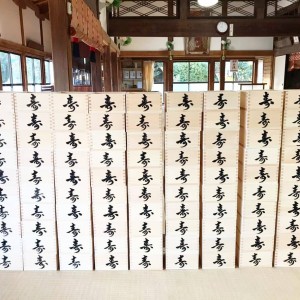 寿寿寿寿寿寿寿寿寿
寿寿寿寿寿寿寿寿寿
寿寿寿寿寿寿寿寿寿
寿寿寿寿寿寿寿寿寿
寿寿寿寿寿寿寿寿寿
寿寿寿寿寿寿寿寿寿
寿寿寿寿寿寿寿寿寿
寿寿寿寿寿寿寿寿寿
寿寿寿寿寿寿寿寿寿
寿寿寿寿寿寿寿寿寿